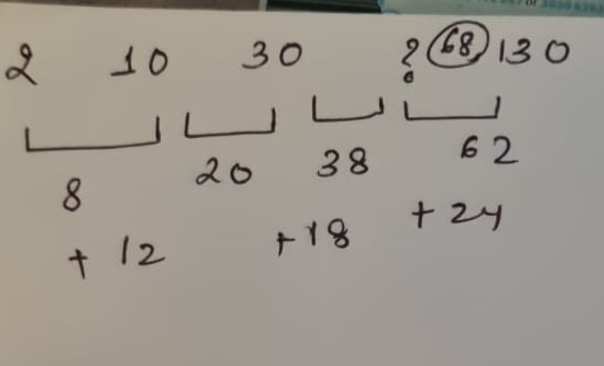 2 10 30 ? 68 130
8 20 38 62
+ 12 +18 + 24